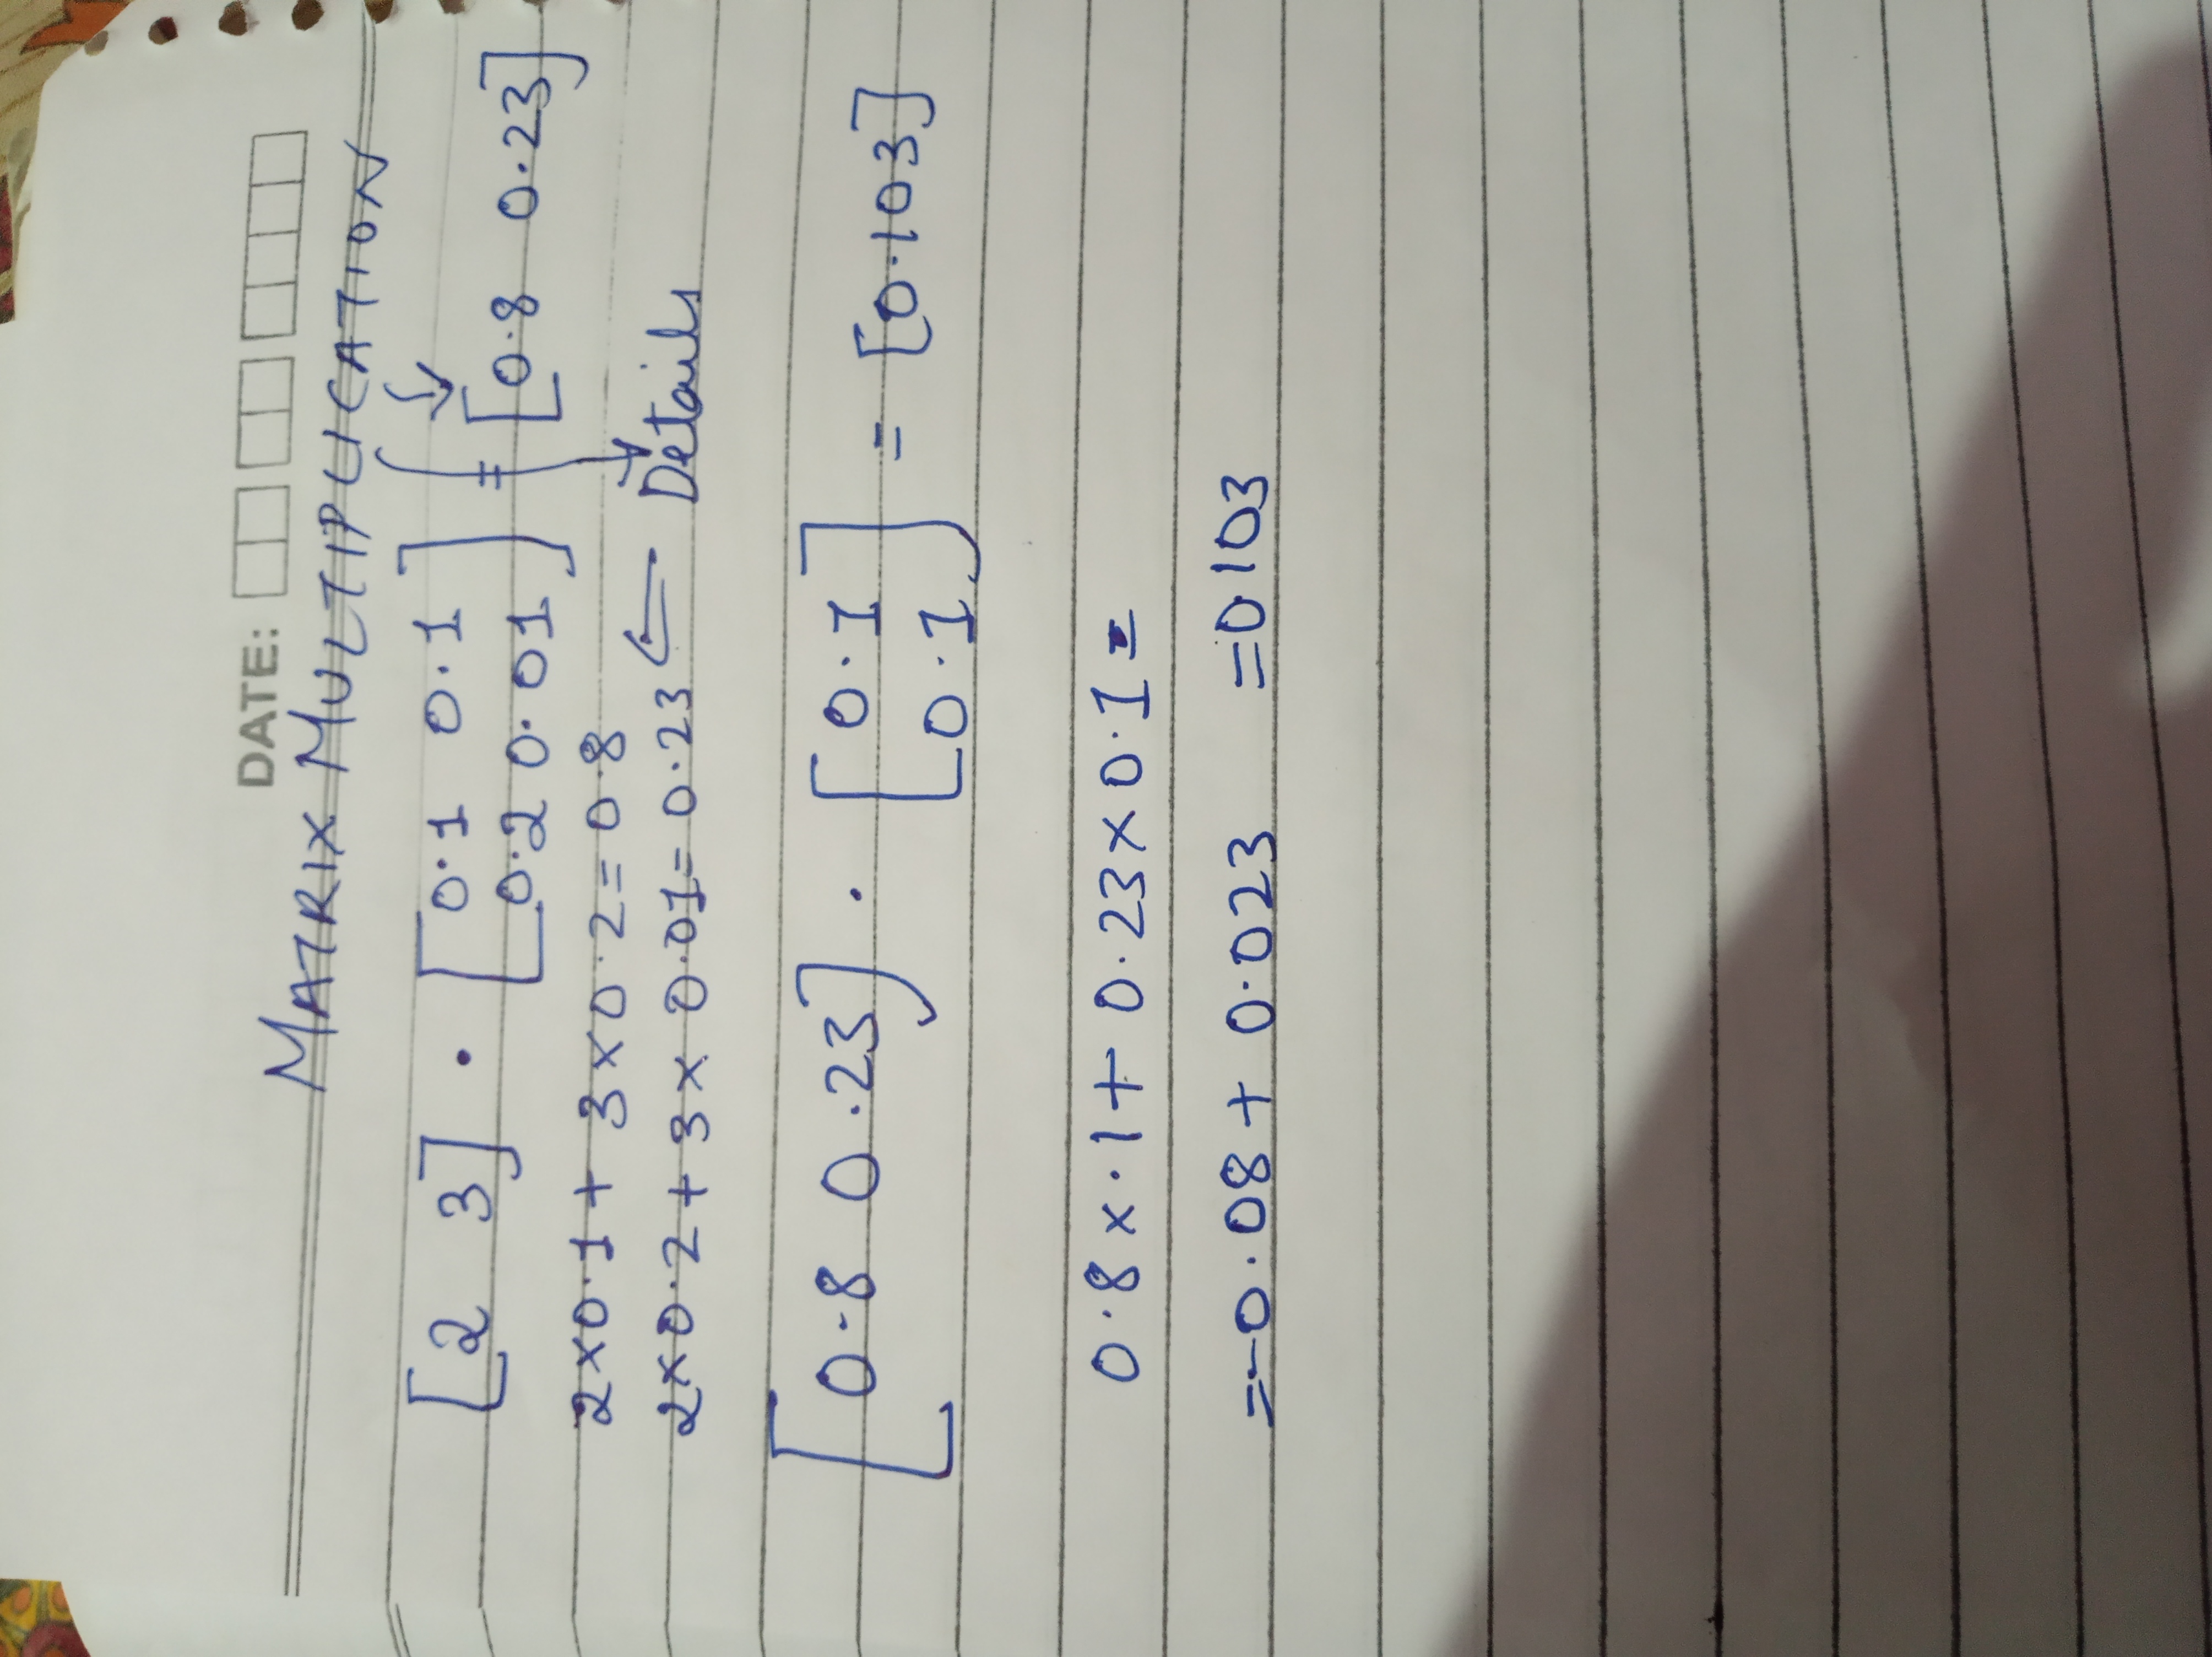 DATE:
MATRIX MULTIPLICATION
[2 3] · [0.1 0.1
0.2 0.01] = [0.8 0.23]
2×0.1 + 3×0.2 = 0.8
2×0.2 + 3×0.01 = 0.23 ← Details
[0.8 0.23] · [0.1
0.1] = [0.103]
0.8×.1 + 0.23×0.1 =
=-0.08 + 0.023 =0.103